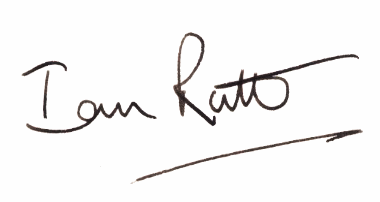 Ian Ratto